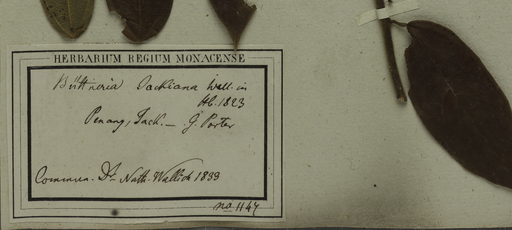 HERBARIUM REGIUM MONACENSE
Büttneria Jackiana Wall. in
Hb. 1823
Penang, Jack. — G. Porter
Commun. Dr. Nath. Wallich 1833
no. 1147